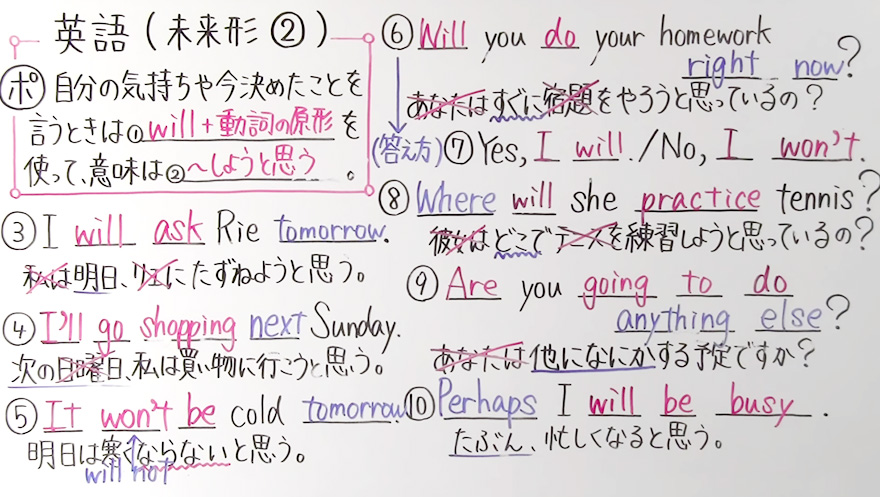 英語(未来形②)
ポ 自分の気持ちや今決めたことを
言うときは①will+動詞の原形を
使って、意味は②~しようと思う。
③I will ask Rie tomorrow.
私は明日、リエにたずねようと思う。
④I'll go shopping next Sunday.
次の日曜日、私は買い物に行こうと思う。
⑤It won't be cold tomorrow.
明日は寒くならないと思う。
will not
⑥Will you do your homework
right now?
あなたはすぐに宿題をやろうと思っているの?
(答え方)⑦Yes, I will./No, I won't.
⑧Where will she practice tennis?
彼女はどこでテニスを練習しようと思っているの?
⑨Are you going to do
anything else?
あなたは他になにかする予定ですか?
⑩Perhaps I will be busy.
たぶん、忙しくなると思う。